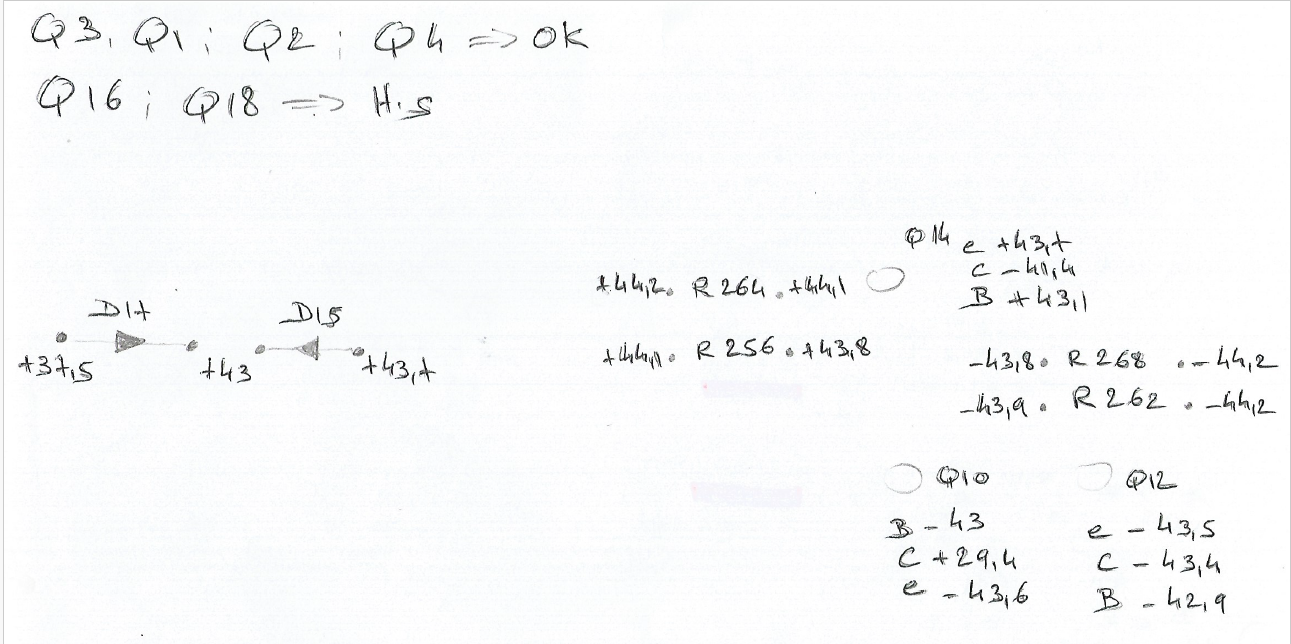 Q3, Q1 ; Q2 ; Q4 => OK
Q16 ; Q18 => H.S
Q14 e +43,7
C -41,4
B +43,1
+44,2 . R 264 . +44,1
D17
D15
+37,5
+43
+43,7
+44,1 . R 256 . +43,8
-43,8 . R 268 . -44,2
-43,9 . R 262 . -44,2
Q10
B -43
C +29,4
e -43,6
Q12
e -43,5
C -43,4
B -42,9